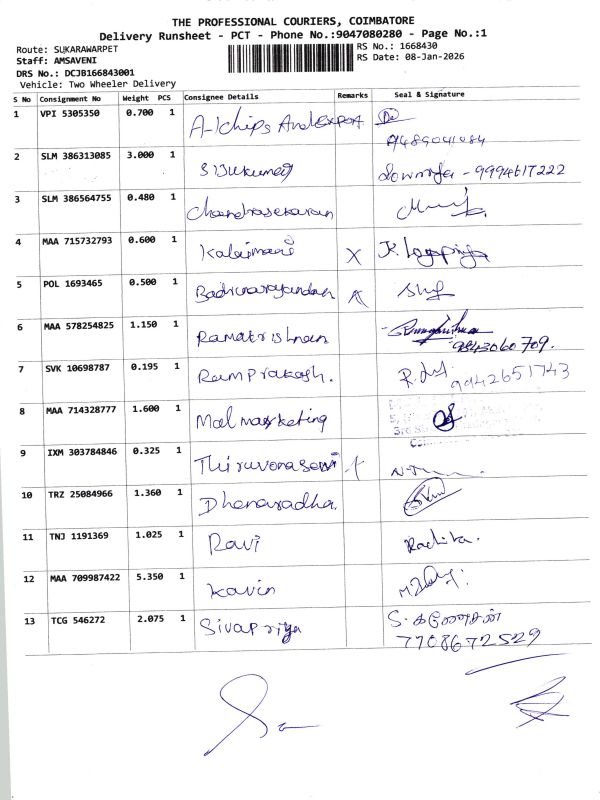 THE PROFESSIONAL COURIERS, COIMBATORE
Delivery Runsheet - PCT - Phone No.:9047080280 - Page No.:1
Route: SUKARAWARPET
RS No.: 1668430
Staff: AMSAVENI
RS Date: 08-Jan-2026
DRS No.: DCJB166843001
Vehicle: Two Wheeler Delivery
S No Consignment No Weight PCS Consignee Details Remarks Seal & Signature
1 VPI 5305350 0.700 1 A-1 chips And Export
9489041084
2 SLM 386313085 3.000 1 Sijukumar Sowmya - 9994617222
3 SLM 386564755 0.480 1 Chandrasekaran
4 MAA 715732793 0.600 1 Kalaimani X
5 POL 1693465 0.500 1 Badrinarayandan
6 MAA 578254825 1.150 1 Ramakrishnan
9843060709.
7 SVK 10698787 0.195 1 Ramprakash. 9942651743
8 MAA 714328777 1.600 1 Mal marketing
9 IXM 303784846 0.325 1 Thiruvonaselvi
10 TRZ 25084966 1.360 1 Dhanaradha.
11 TNJ 1191369 1.025 1 Ravi Rachita.
12 MAA 709987422 5.350 1 Kavin
13 TCG 546272 2.075 1 Sivapriya S. கணேசன்
7708672529